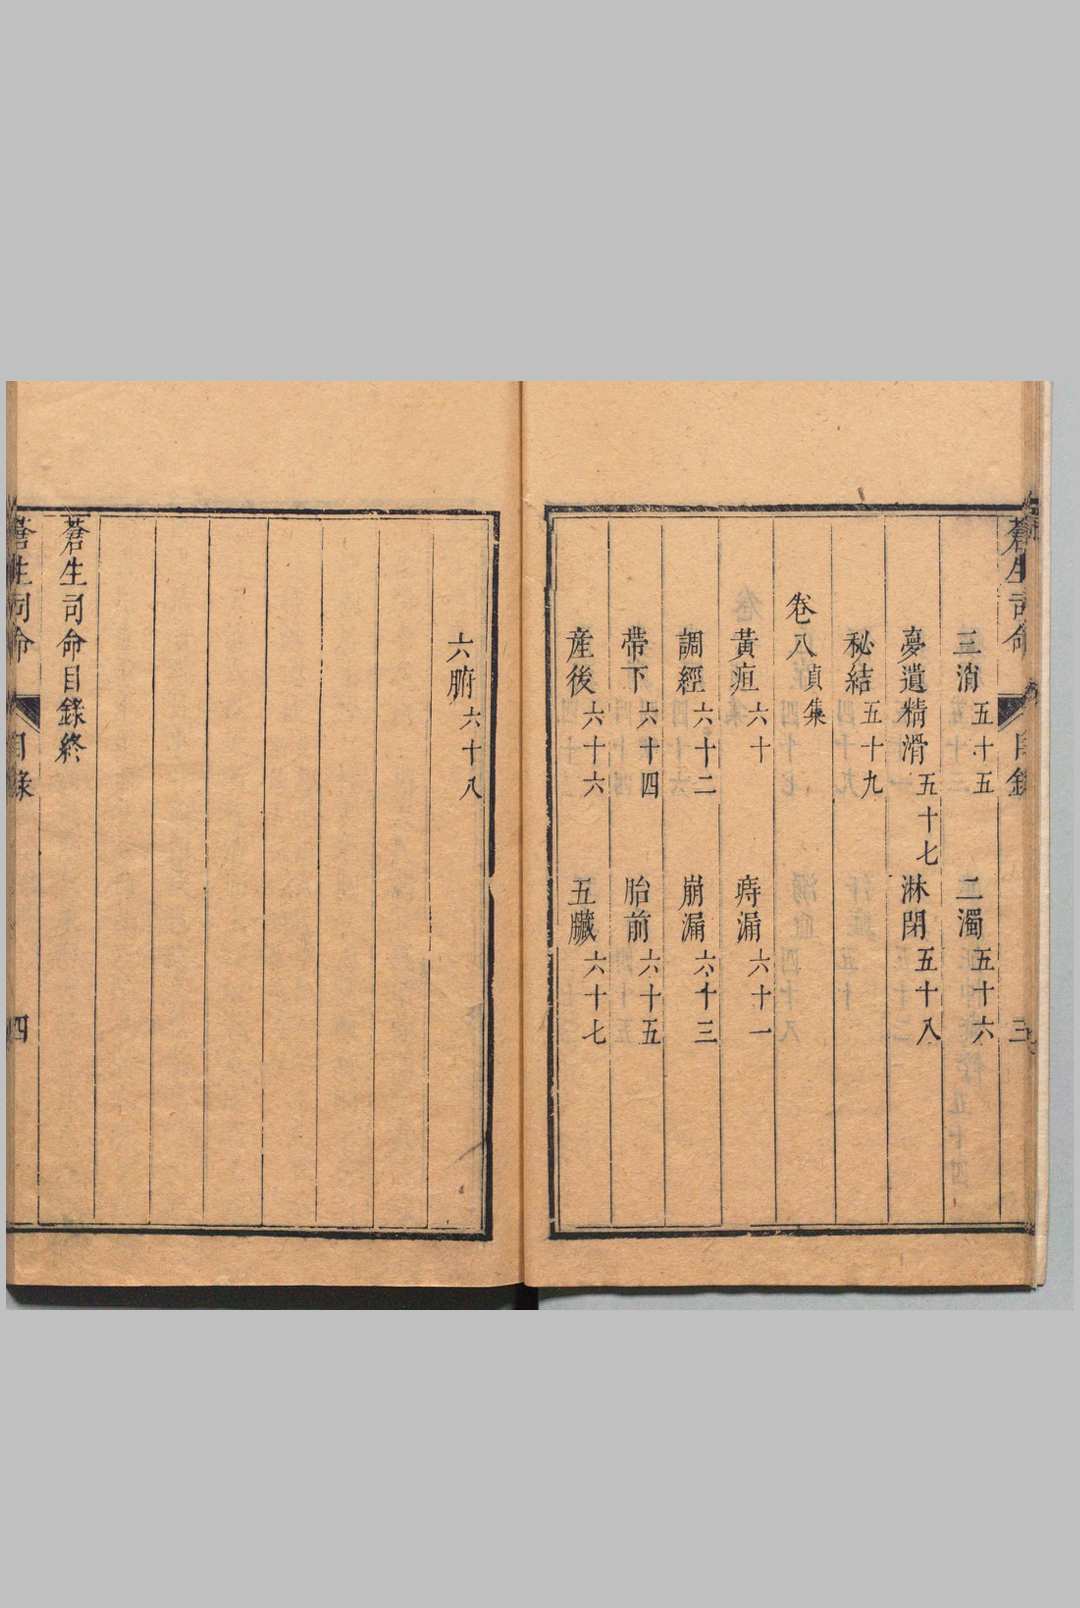 蒼生司命 目錄 三
三消五十五 二濁五十六
夢遺精滑五十七 淋閉五十八
秘結五十九
卷八貞集
黃疸六十 痔漏六十一
調經六十二 崩漏六十三
帶下六十四 胎前六十五
産後六十六 五臟六十七
六腑六十八
蒼生司命目錄終
蒼生司命 目錄 四